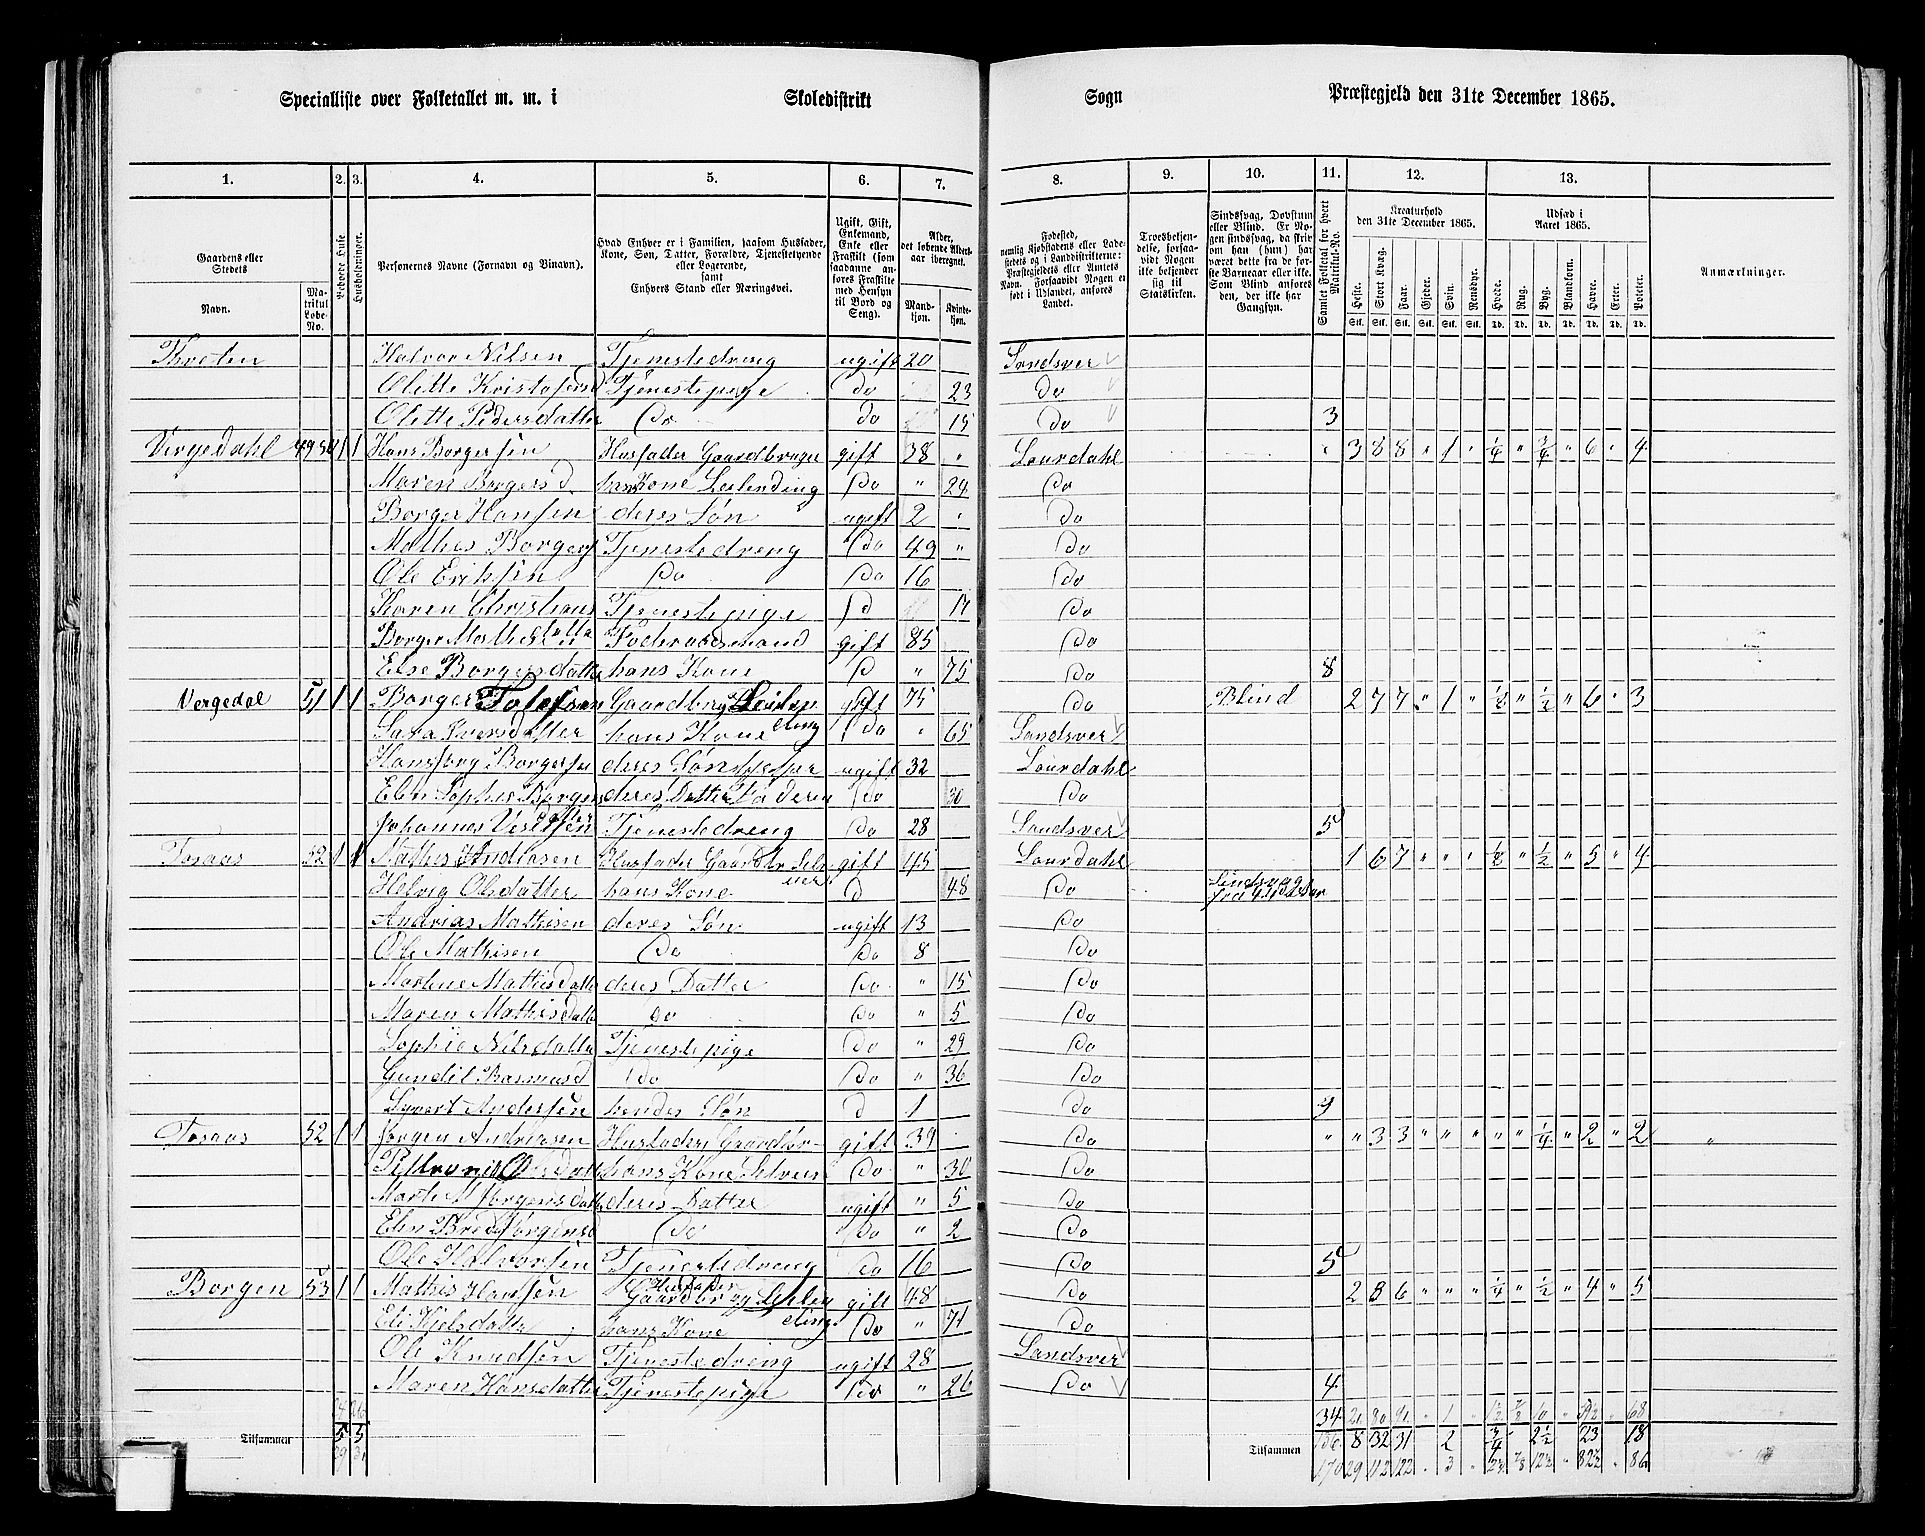 Specialliste over Folketallet m. m. i Skoledistrikt Sogn Præstegjeld den 31te December 1865.
1. 2. 3. 4. 5. 6. 7. 8. 9. 10. 11. 12. 13.
Gaardens eller Stedets
Navn.
Matrikul Løbe-No.
Beboede Huse
Husholdninger.
Personernes Navne (Fornavn og Tilnavn).
Hvad Enhver er i Familien, saasom Husfader, Kone, Søn, Datter, Forældre, Tjenestetyende eller Logerende, samt Enhvers Stand eller Næringsvei.
Ugift, Gift, Enkemand, Enke eller Fraskilt (som saadanne anføres Fraskilte med Hensyn til Bord og Seng).
Alder, det løbende Aldersaar iberegnet.
Mandkjøn.
Kvindekjøn.
Fødested, nemlig Kjøbstadens eller Ladestedets og i Landdistrikterne: Præstegjeldets eller Amtets Navn. Forsaavidt Nogen er født i Udlandet, anføres Landet.
Troesbekjendelse, forsaavidt Nogen ikke bekjender sig til Statskirken.
Sindssvag, Døvstum eller Blind. Er Nogen sindssvag, da skrives om han (hun) har været dette fra de første Barneaar eller ikke. Som Blind anføres den, der ikke har Gangsyn.
Gamlet Folketal for hvert Matrikul-No.
Kreaturhold den 31te December 1865.
Heste. Stort Kvæg. Faar. Gjeder. Svin. Rensdyr.
Stk. Stk. Stk. Stk. Stk. Stk.
Udsæd i Aaret 1865.
Hvede. Rug. Byg. Blandkorn. Havre. Erter. Poteter.
Td. Td. Td. Td. Td. Td. Td.
Anmærkninger.
Braten Halvor Nilsen Tjenestedreng ugift 20 Sandsver
Olette Kristofersd Tjenestepige Do 23 Do
Olette Pedersdatter Do Do 15 Do 3
Vergedahl 49 50 1 1 Hans Borgersen Husfader Gaardbruger gift 38 " Lourdahl " 3 8 8 " 1 " 1/4 " 3/4 " 6 " 4
Maren Borgersd hans Kone Leilending Do " 24 Do
Borger Hansen deres Søn ugift 2 " Do
Mathis Borgers Tjenestedreng Do 49 " Do
Ole Eriksen Do Do 16 Do
Karen Christians datter Tjenestepige D 17 Do
Borger Mathisen Foderaadsmand gift 85 Do
Else Borgersdatter hans Kone D " 75 Do 8
Vergedal 51 1 1 Borger Gaardbrug Leilending gift 75 Do Blind 2 7 7 " 1 " 1/2 " 1/2 " 6 " 3
Sara Iversdatter hans Kone Do " 65 Sandsver
Hans Jørg Borgersen deres Søn ugift 32 Lourdahl
Elen Sophie Borgers datter deres Datter Do 30 Do
Johannes Tjenestedreng Do 28 Sandsver 5
Tosaas 52 1 1 Mathis Andriasen Husfader Gaardbr Selveier gift 45 Lourdahl 1 6 7 " " " 1/2 " 1/2 " 5 " 4
Helvig Olsdatter hans Kone D 48 Do Sindsvag
Andrias Mathisen deres Søn ugift 13 Do
Ole Mathisen Do Do 8 Do
Marthe Mathisdatte deres Datter Do " 15 Do
Maren Mathisdatte Do Do " 5 Do
Sophie Nilsdatte Tjenestepige Do " 29 Do
Gundil Rasmusd Do Do " 36 Do
Syvert Andersen hendes Søn D 1 Do 9
Tosaas 52 1 1 Jørgen Andriasen Husfader Gaardbr- gift 39 " Do " " 3 3 " " " " " 1/4 " 2 " 2 "
Olsdatte hans Kone Selveier Do " 30 Do
Marte M Jørgensdatte deres Datter ugift " 5 Do
Elen Jørgensd Do Do " 2 Do
Ole Halvorsen Tjenestedreng Do 16 Do 5
Borgen 53 1 1 Mathis Hansen Husfader Gaardbr og Leilending gift 48 Do 2 8 6 " " " 1/4 " 1/2 " 4 " 5
Eli Kjelsdatte hans Kone Do " 71 Do
Ole Knudsen Tjenestedreng ugift 28 Sandsver
Maren Hansdatte Tjenestepige Do " 26 Do 4
24 26 34 21 80 91 " 1 " 1 1/2 7/8 10 " " 68
Tilsammen 5 5 Tilsammen 136 8 32 31 2 3/4 2 1/2 23 18
29 31 170 29 112 122 " 3 " 2 1/4 7/8 12 1/2 " 82 1/2 " 86